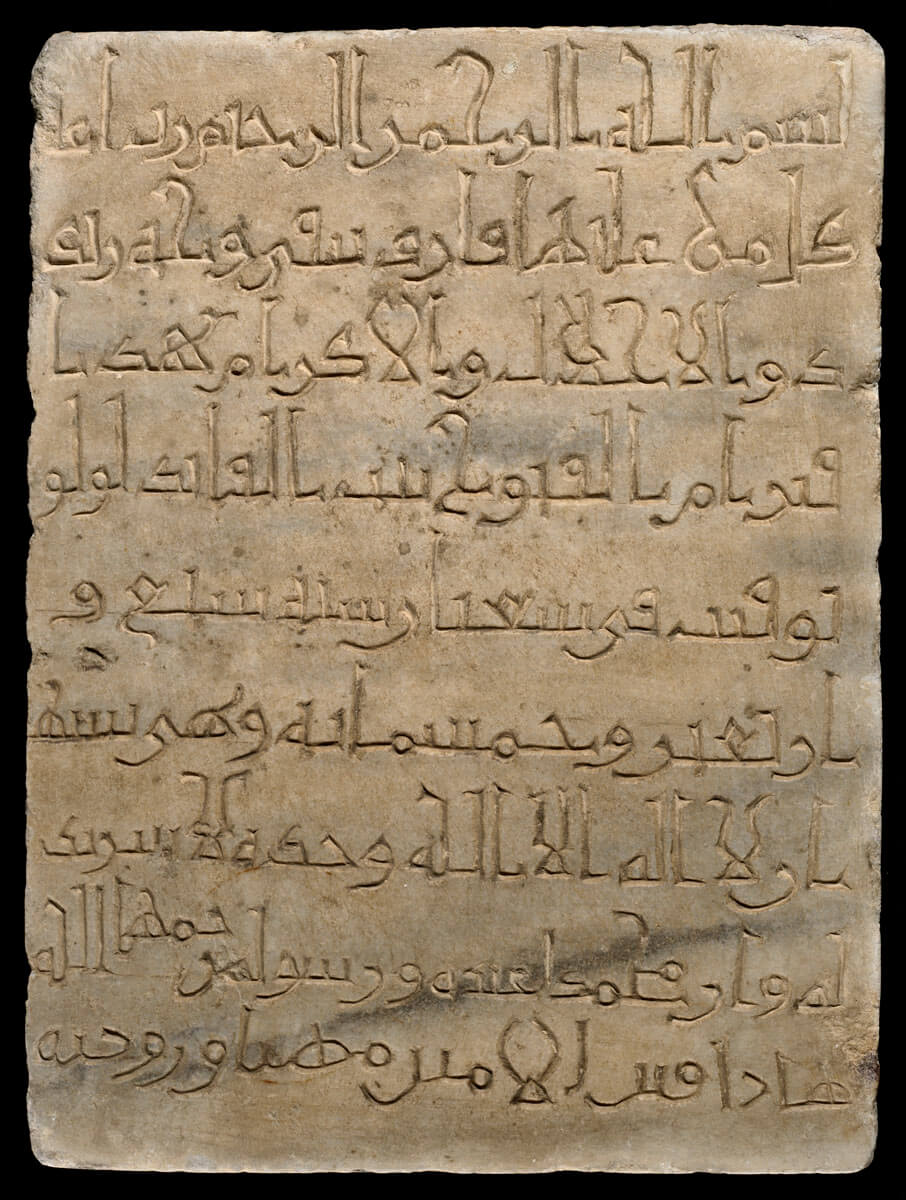 بسم الله الرحمن الرحيم
كل من عليها فان ويبقى وجه رب
ك ذو الجلال والاكرام هذا
قبر ام الفتوح بنت القائد لولو
توفيت في شعبان سنة سبع و
اربعين وخمسمائة وهي تشهد
ان لا اله الا الله وحده لا شريك
له وان محمدا عبده ورسوله رحمها الله
هاذا قبر